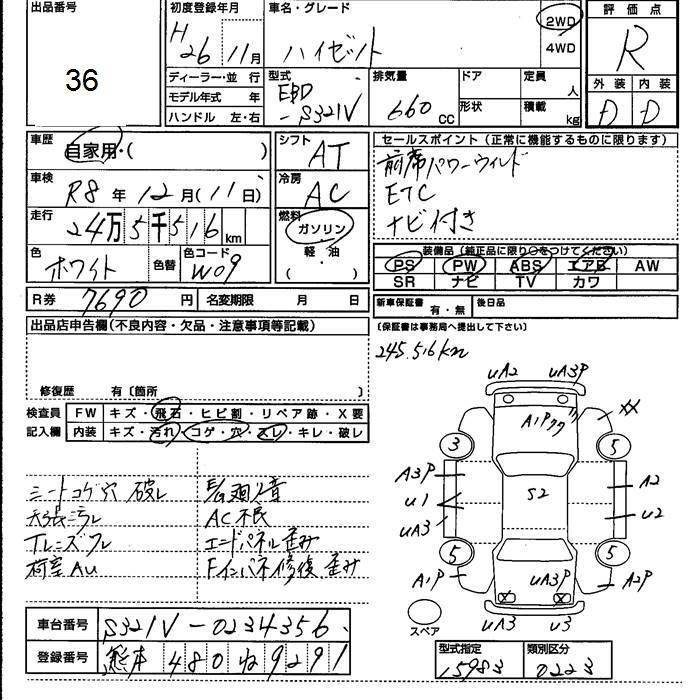 出品番号
36
初度登録年月
H 26 11月
車名・グレード
ハイゼット
2WD
4WD
評価点
R
外装 内装
D D
ディーラー・並 行
モデル年式 年
ハンドル 左・右
型式
EBD
-S321V
排気量
660 CC
ドア
形状
定員
人
積載
kg
車歴
自家用・( )
シフト
AT
車検
R8 年 12月(11日)
冷房
AC
走行
24万5千516 km
燃料
ガソリン
軽・油
( )
色
ホワイト
色替
色コード
W09
R券
7690 円
名変期限 月 日
セールスポイント(正常に機能するものに限ります)
前席パワーウィンド
ETC
ナビ付き
装備品(純正品に限り○をつけてください)
PS PW ABS エアB AW
SR ナビ TV カワ
新車保証書 有・無
後日品
(保証書は事務局へ提出して下さい)
245.516km
出品店申告欄(不良内容・欠品・注意事項等記載)
修復歴 有〔箇所 〕
検査員 FW キズ・飛石・ヒビ割・リペア跡・X要
記入欄 内装 キズ・汚れ・コゲ・穴・スレ・キレ・破レ
シートコゲ穴 破レ
AC不良
エンドパネル歪み
荷室AU
Fインパネ修復 歪み
UA2 UA3P
A1P
XX
3 5
A3P
U1
UA3
S2
A2
U2
5 5
A1P
UA3P
A2P
UA3 U3
スペア
車台番号 S321V-0234356
登録番号 熊本 480 9291
型式指定 類別区分
15983 0223